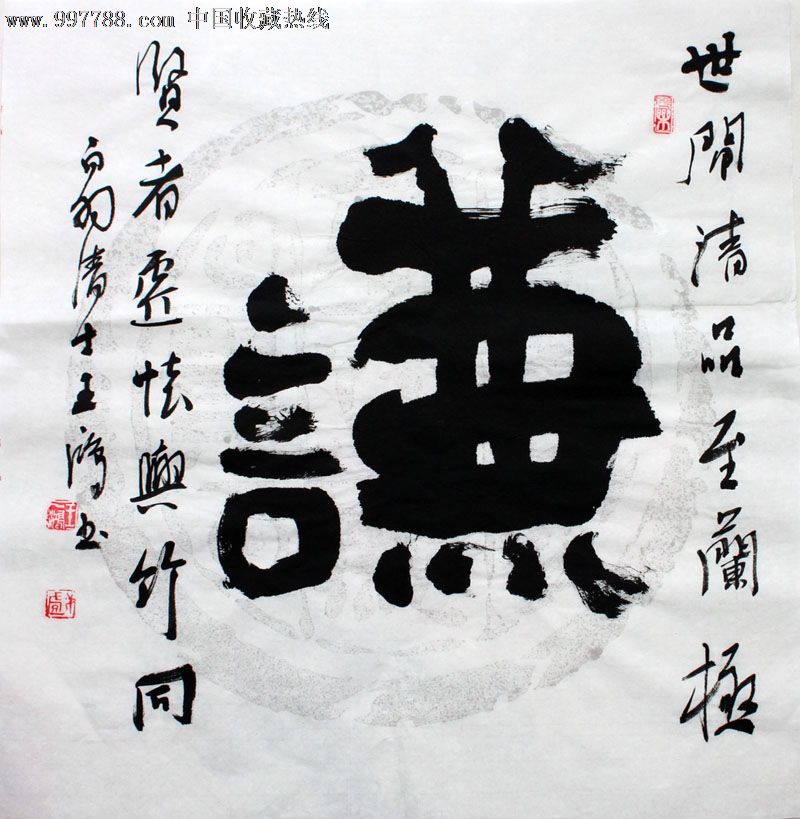 www.997788.com 中国收藏热线
世間清品至蘭極
謙
賢者虛怀與竹同
清士王鴻书